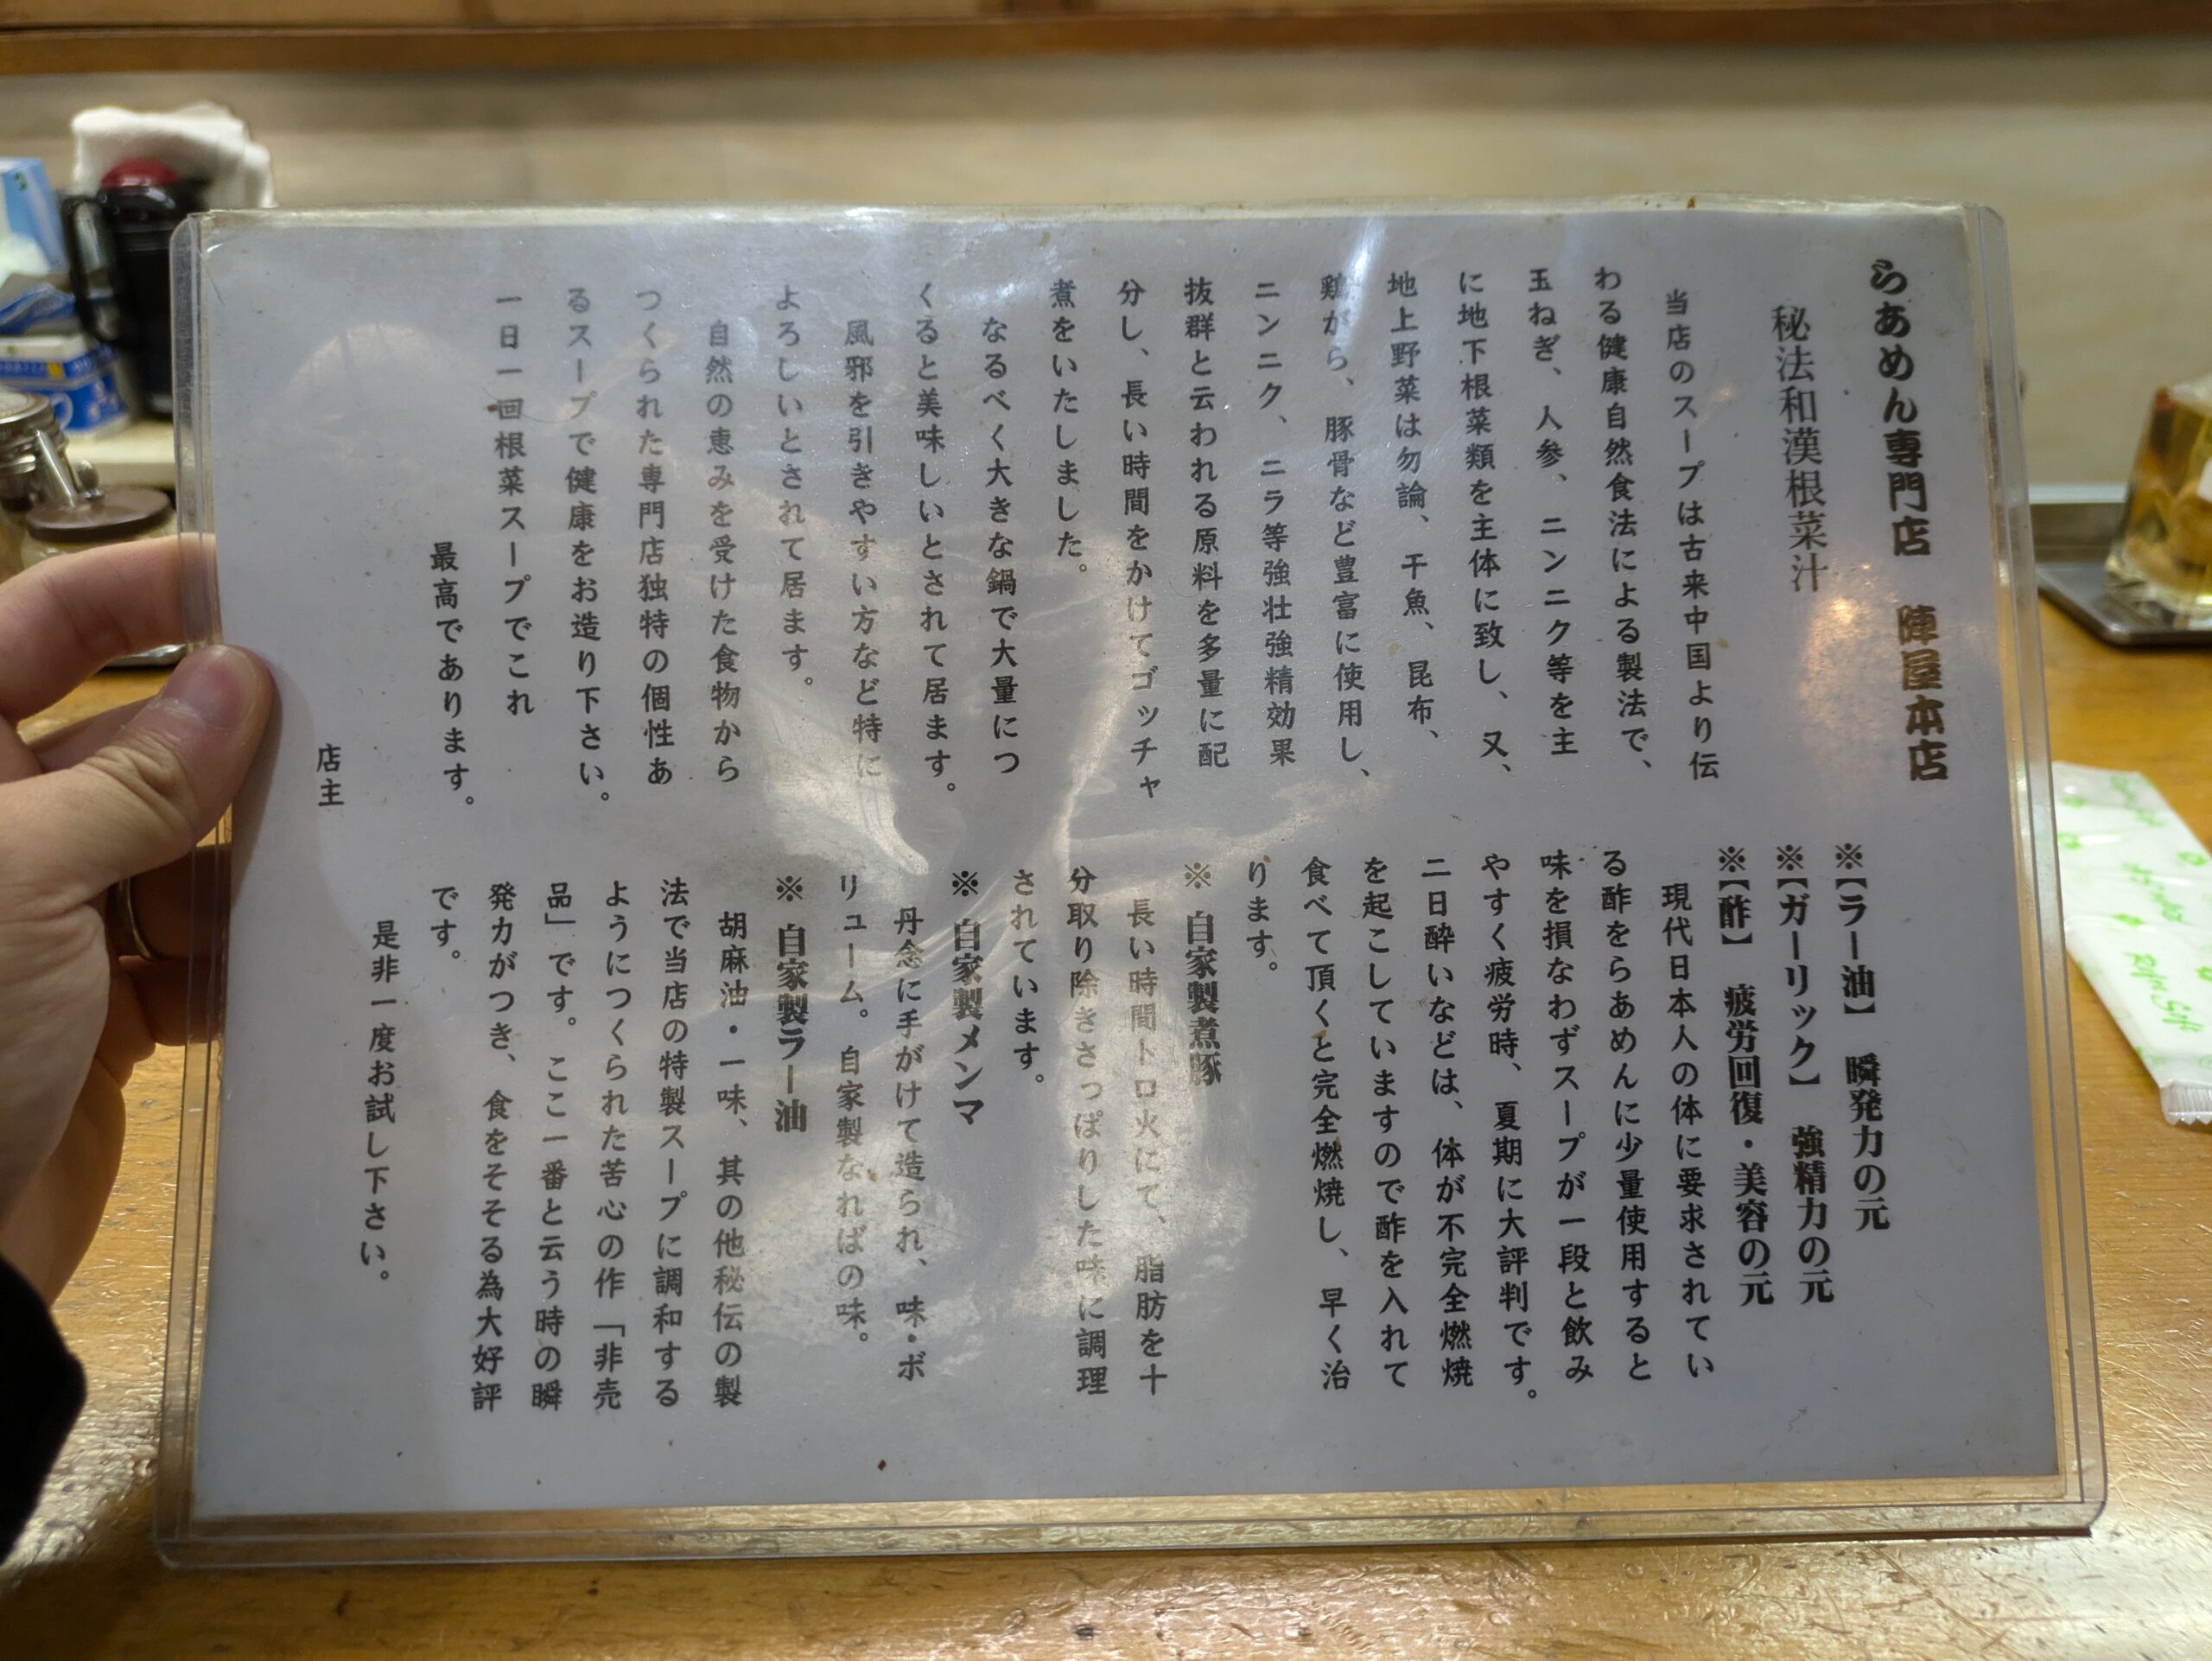 らあめん専門店　陣屋本店
秘法和漢根菜汁
当店のスープは古来中国より伝
わる健康自然食法による製法で、
玉ねぎ、人参、ニンニク等を主
に地下根菜類を主体に致し、又、
地上野菜は勿論、干魚、昆布、
鶏がら、豚骨など豊富に使用し、
ニンニク、ニラ等強壮強精効果
抜群と云われる原料を多量に配
分し、長い時間をかけてゴッチャ
煮をいたしました。
なるべく大きな鍋で大量につ
くると美味しいとされて居ます。
風邪を引きやすい方など特に
よろしいとされて居ます。
自然の恵みを受けた食物から
つくられた専門店独特の個性あ
るスープで健康をお造り下さい。
一日一回根菜スープでこれ
最高であります。
店主
※【ラー油】　瞬発力の元
※【ガーリック】　強精力の元
※【酢】　疲労回復・美容の元
現代日本人の体に要求されてい
る酢をらあめんに少量使用すると
味を損なわずスープが一段と飲み
やすく疲労時、夏期に大評判です。
二日酔いなどは、体が不完全燃焼
を起こしていますので酢を入れて
食べて頂くと完全燃焼し、早く治
ります。
※　自家製煮豚
長い時間トロ火にて、脂肪を十
分取り除きさっぱりした味に調理
されています。
※　自家製メンマ
丹念に手がけて造られ、味・ボ
リューム。自家製なればの味。
※　自家製ラー油
胡麻油・一味、其の他秘伝の製
法で当店の特製スープに調和する
ようにつくられた苦心の作「非売
品」です。ここ一番と云う時の瞬
発力がつき、食をそそる為大好評
です。
是非一度お試し下さい。